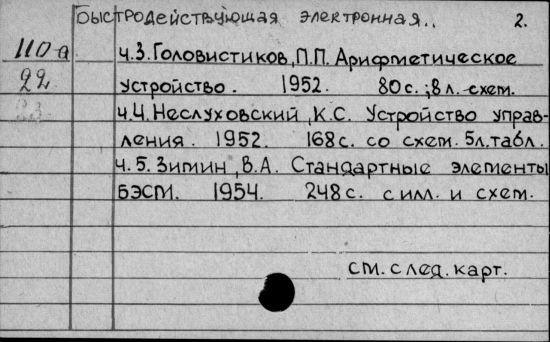 Быстродействующая электронная.. 2.
110а ч.3. Головистиков, П.П. Арифметическое
22 устройство. 1952. 80с.; 8л. схем.
ч.4. Неслуховский, К.С. Устройство управ-
ления. 1952. 168с. со схем. 5л. табл.
ч.5. Зимин, В.А. Стандартные элементы
БЭСМ. 1954. 248с. с илл. и схем.
см. след. карт.